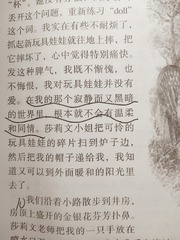 “杯”
丢开这个问题，重新练习“doll”
这个词。我实在有些不耐烦了，
抓起新玩具娃娃就往地上摔，把
它摔坏了，心中觉得特别痛快。
发这种脾气，我既不惭愧，也
不悔恨，我对玩具娃娃并没有
爱。在我的那个寂静而又黑暗
的世界里，根本就不会有温柔
和同情。莎莉文小姐把可怜的
玩具娃娃的碎片扫到炉子边，
然后把我的帽子递给我，我知
道又可以到外面暖和的阳光里
去了。
我们沿着小路散步到井房，
房顶上盛开的金银花芬芳扑鼻。
莎莉文老师把我的一只手放在